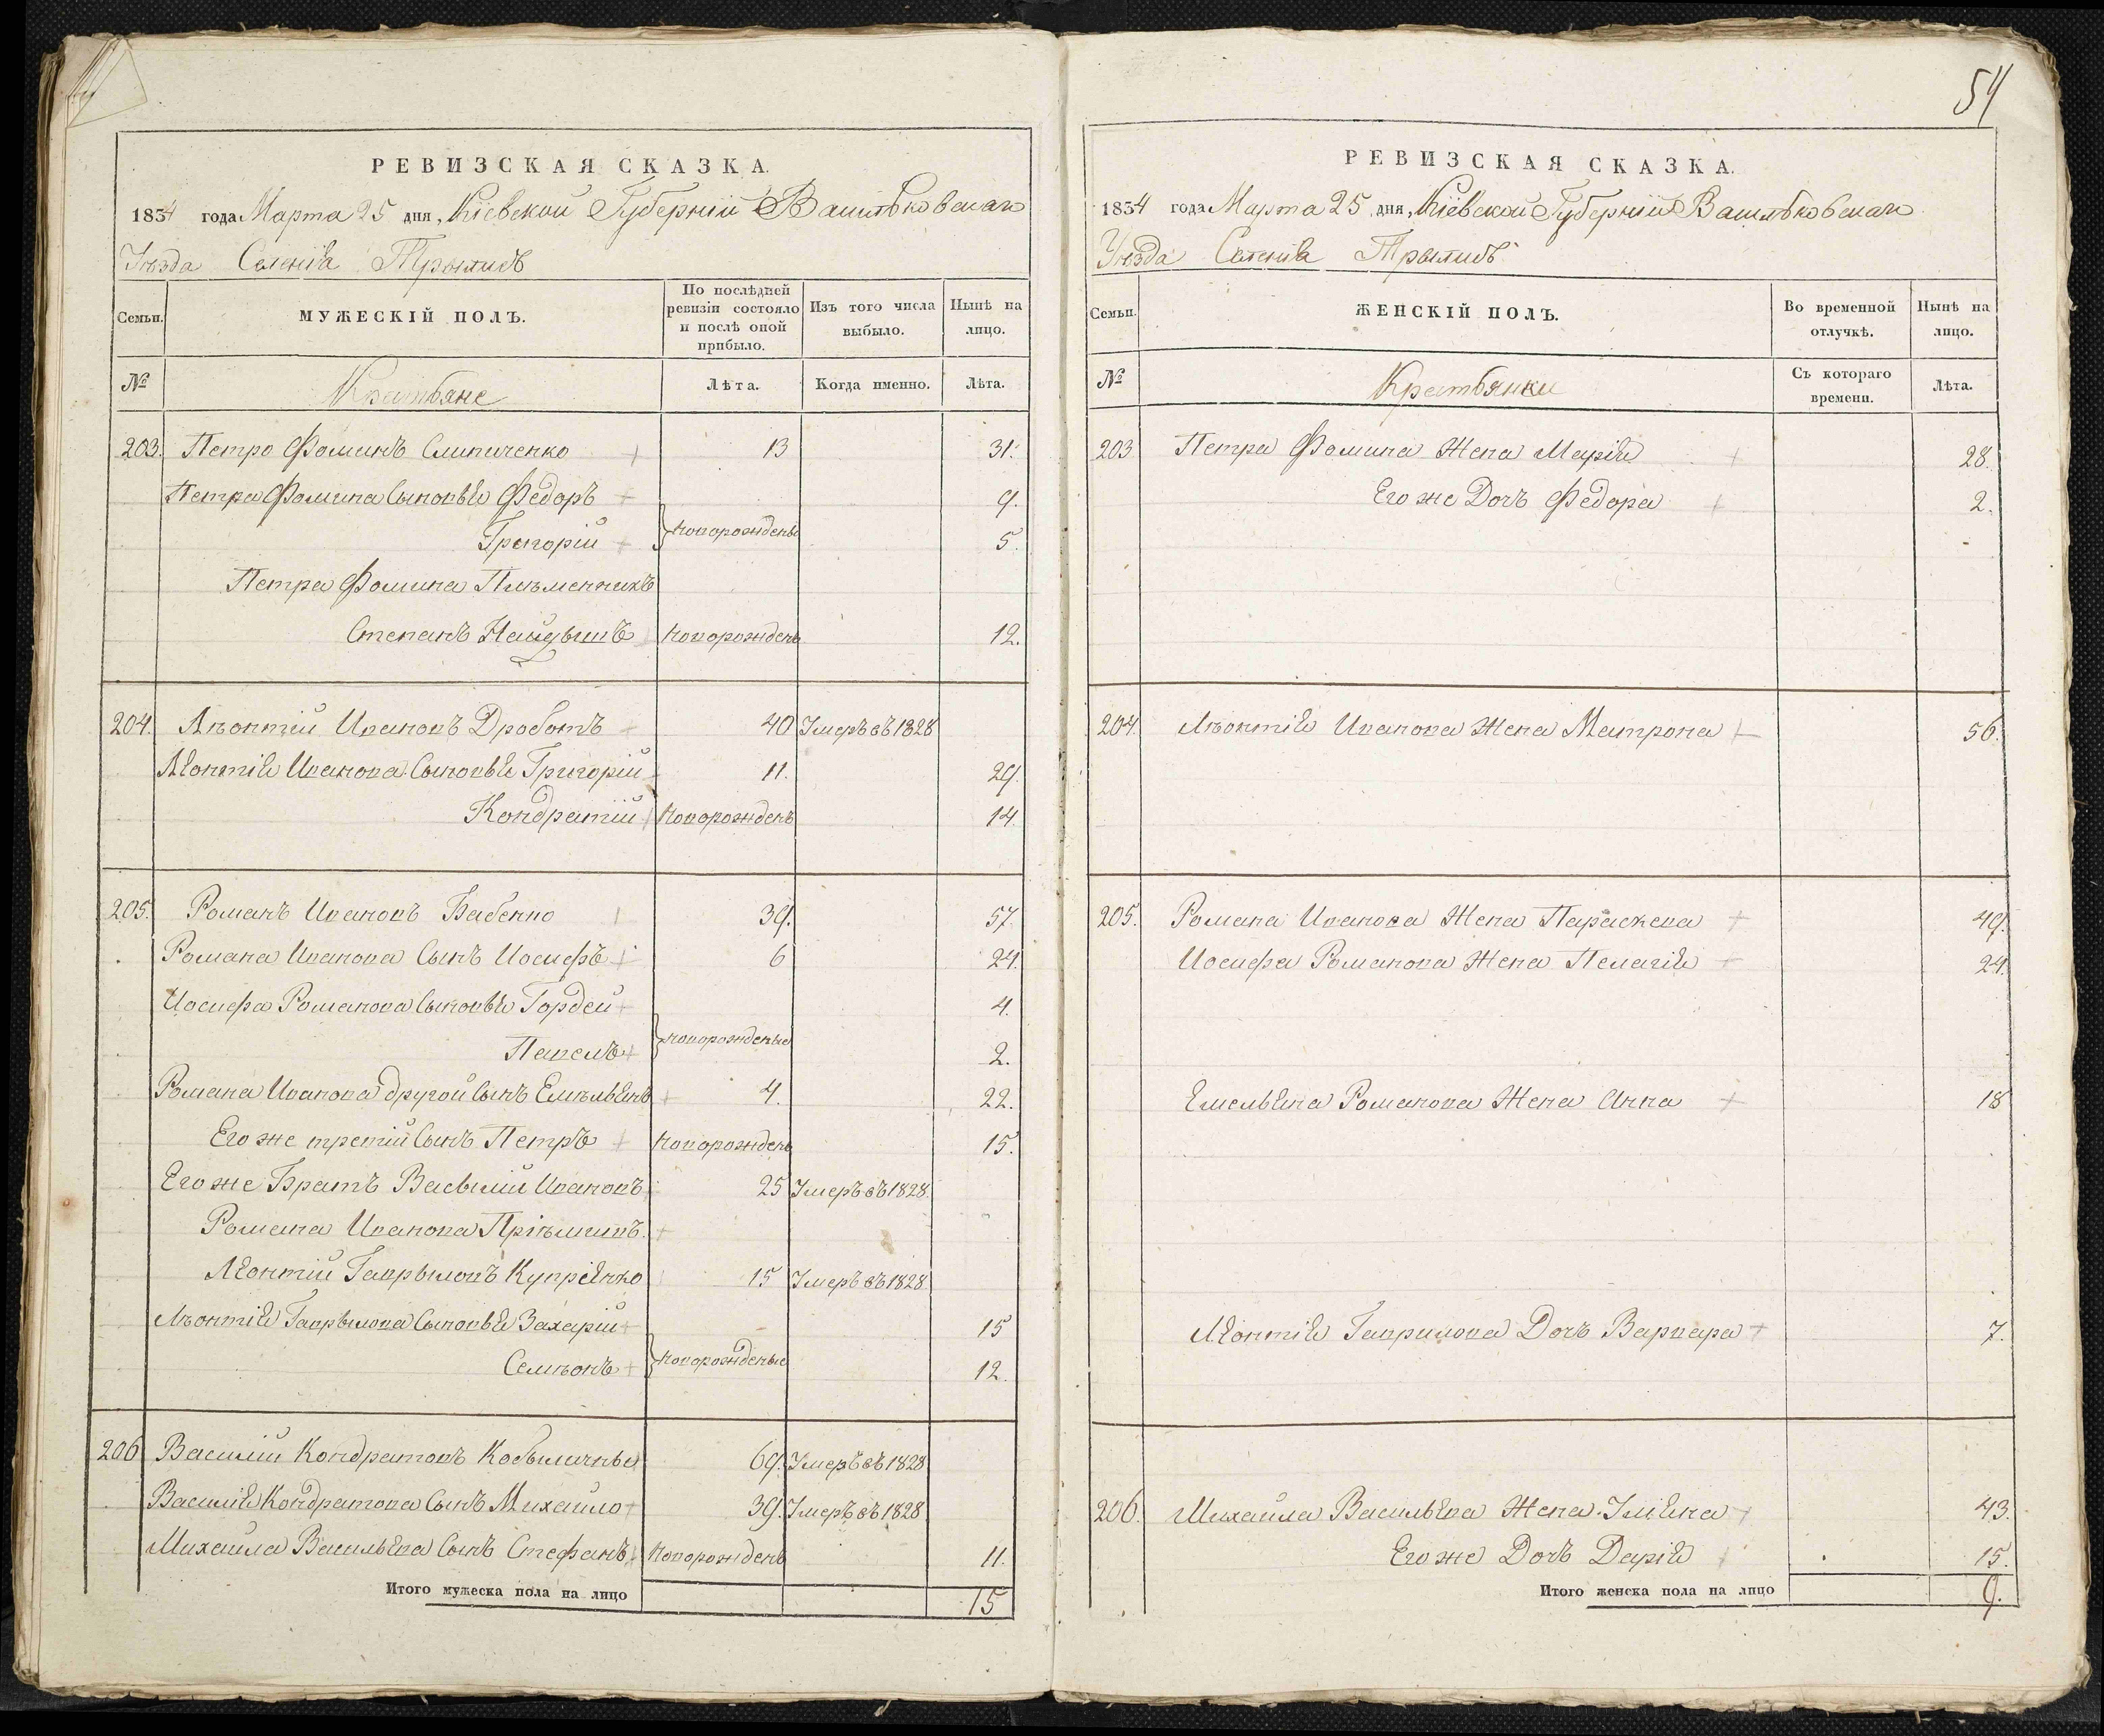 54
РЕВИЗСКАЯ СКАЗКА.
1834 года Марта 25 дня, Кіевской Губерніи Васильковскаго
Уѣзда Селенія Трылисъ
Семьи.
МУЖЕСКІЙ ПОЛЪ.
По послѣдней ревизіи состояло и послѣ оной прибыло.
Изъ того числа выбыло.
Нынѣ на лицо.
№
Крестьяне
Лѣта.
Когда именно.
Лѣта.
203. Петро Фоминъ Слипиченко 13 31.
Петра Фомина Сыновья Федоръ 9.
новорожденые
Григорій 5.
Петра Фомина Плѣменникъ
Степанъ новорожденъ 12.
204. Лѣонтій Ивановъ Дроботъ 40 Умеръ въ 1828
Леонтія Иванова Сыновья Григорій 11. 29.
Кондратій новорожденъ 14.
205. Романъ Ивановъ Бабенко 39. 57.
Романа Иванова Сынъ Иосифъ 6 24.
Иосифа Романова Сыновья Гордей 4.
новорожденые
Павелъ 2.
Романа Иванова другой Сынъ Емѣльянъ 4. 22.
Его же третій Сынъ Петръ новорожденъ 15.
Его же Братъ Василій Ивановъ 25 Умеръ въ 1828.
Романа Иванова Пріѣмышъ
Леонтій Гаврыловъ Купріенко 15 Умеръ въ 1828
Лѣонтія Гаврылова Сыновья Захарій 15
новорожденые
Семѣонъ 12.
206 Василій Кондратовъ 69. Умеръ въ 1828
Василія Кондратова Сынъ Михайло 39. Умеръ въ 1828
Михайла Васильева Сынъ Стефанъ новорожденъ 11.
Итого мужеска пола на лицо 15
РЕВИЗСКАЯ СКАЗКА.
1834 года Марта 25 дня, Кіевской Губерніи Васильковскаго
Уѣзда Селенія Трылисъ
Семьи.
ЖЕНСКІЙ ПОЛЪ.
Во временной отлучкѣ.
Нынѣ на лицо.
№
Крестьянки
Съ котораго времени.
Лѣта.
203 Петра Фомина Жена Марія 28.
Его же Дочъ Федора 2.
204. Лѣонтія Иванова Жена Матрона 56.
205. Романа Иванова Жена Параскева 49.
Иосифа Романова Жена Пелагія 24.
Емельяна Романова Жена Анна 18
Леонтія Гаврилова Дочъ Варвара 7.
206. Михайла Васильева Жена Уліяна 43.
Его же Дочъ Дарія 15.
Итого женска пола на лицо 9.